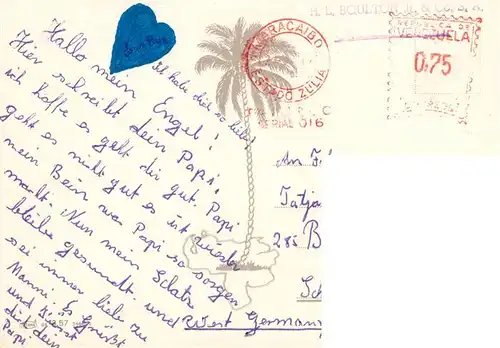 Hallo mein Engel!
Hier schreibt dein Papi!
ich hoffe es geht dir gut. Papi
geht es nicht gut es ist wieder
mein Bein was Papi so sorgen
macht. Nun mein Schatz
bleibe gesund. und
sei immer lieb zu
Manni. Es Grüßt
und
dich dein
Papi.
ich habe dich so lieb!
dein Papi
MARACAIBO
ESTADO ZULIA
SERIAL 016
H. L. BOULTON JR. & CO. S. A.
REPUBLICA DE
VENEZUELA
0.75
An
Tatja
285 B
West German